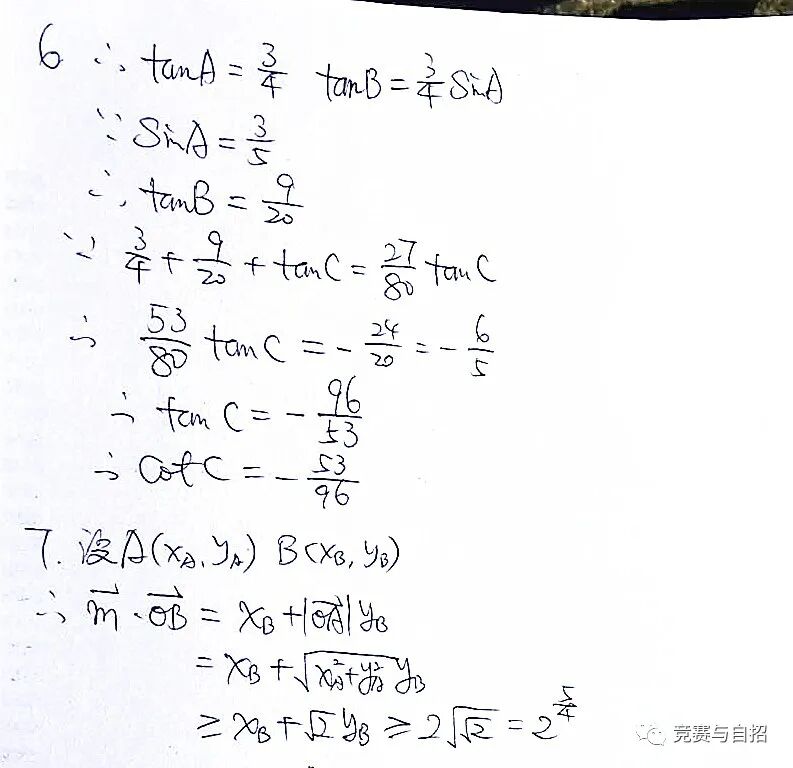 6 ∴ tanA = 3/4 tanB = 3/4 sinA
∵ SinA = 3/5
∴ tanB = 9/20
∵ 3/4 + 9/20 + tanC = 27/80 tanC
∴ 53/80 tanC = - 24/20 = - 6/5
∴ tanC = - 96/53
∴ cotC = - 53/96
7. 设A(x_A, y_A) B(x_B, y_B)
∴ \vec{m} · \vec{OB} = x_B + |\vec{OA}| y_B
= x_B + √(x_A²+y_A²) y_B
≥ x_B + √2 y_B ≥ 2√√2 = 2^{5/4}
竞赛与自招